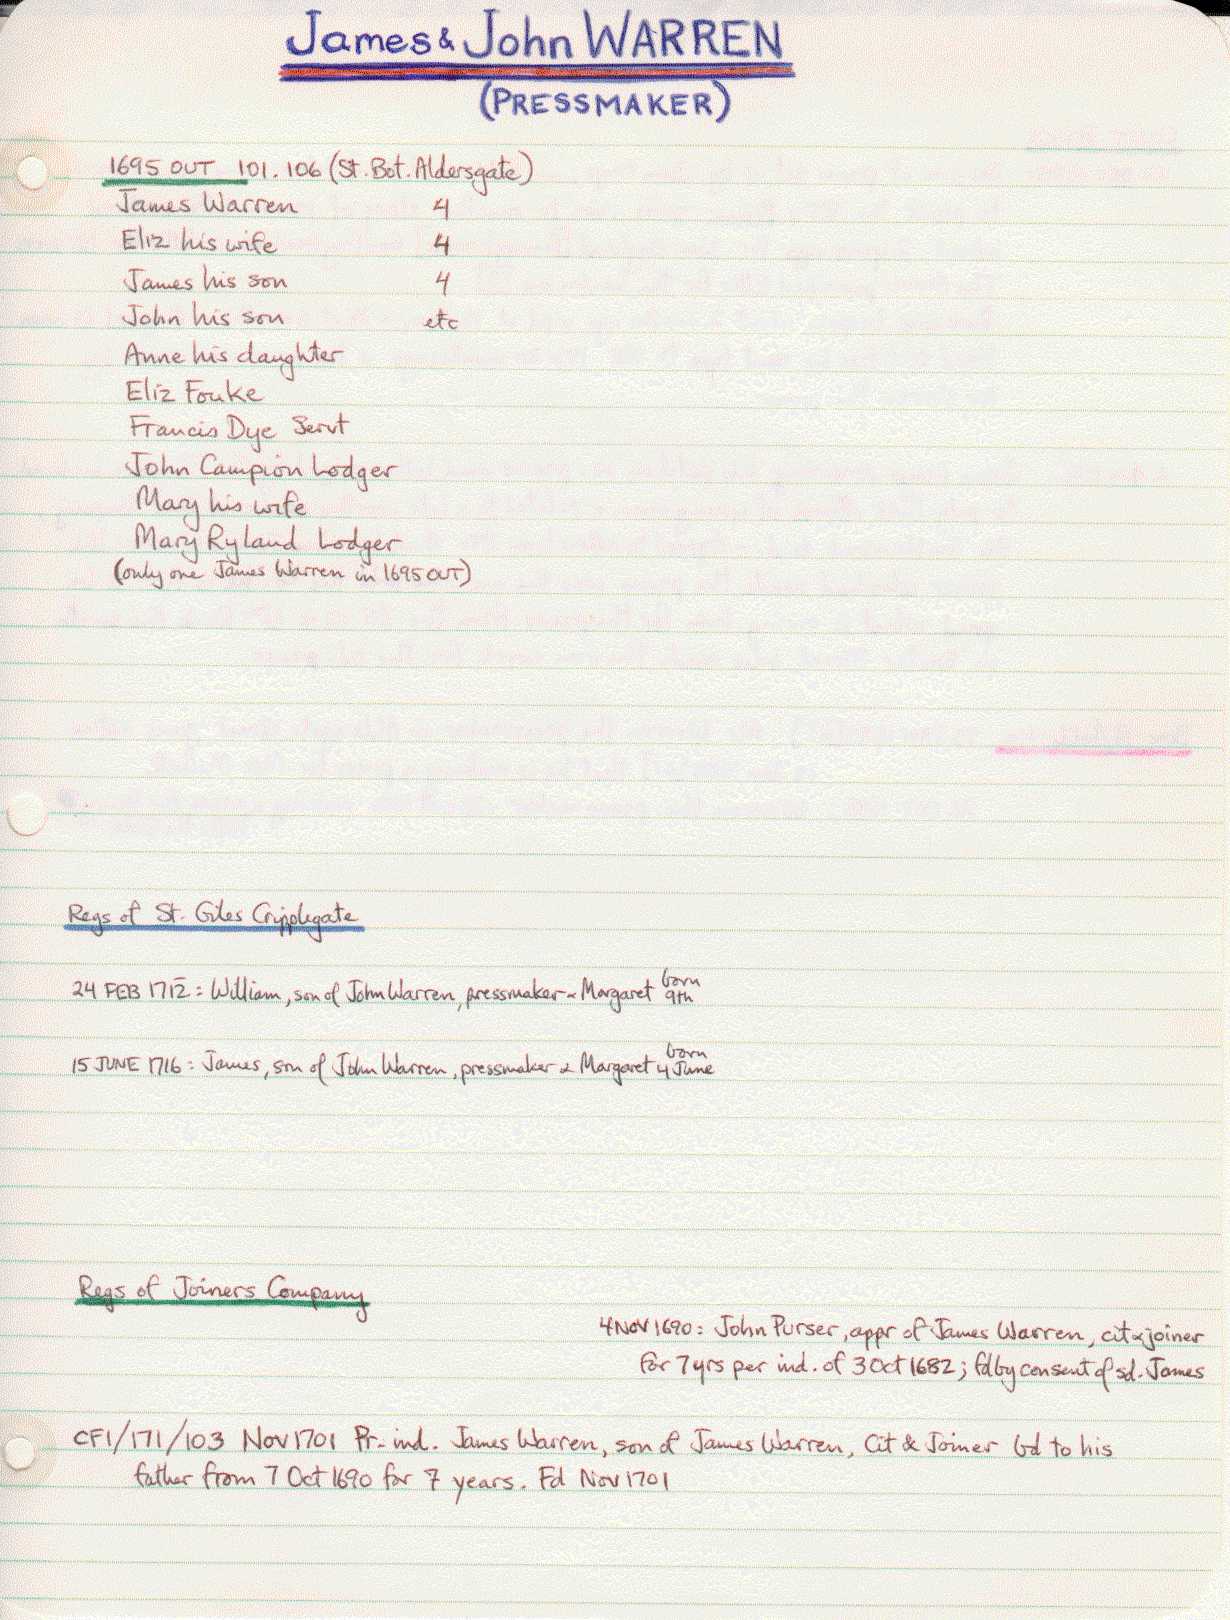 James & John WARREN
(PRESSMAKER)
1695 OUT 101.106 (St. Bot. Aldersgate)
James Warren 4
Eliz his wife 4
James his son 4
John his son etc
Anne his daughter
Eliz Fouke
Francis Dye Servt
John Campion Lodger
Mary his wife
Mary Ryland Lodger
(only one James Warren in 1695 OUT)
Regs of St. Giles Cripplegate
24 FEB 1712 : William, son of John Warren, pressmaker & Margaret born 9th
15 JUNE 1716 : James, son of John Warren, pressmaker & Margaret born 4 June
Regs of Joiners Company
4 NOV 1690 : John Purser, appr of James Warren, cit & joiner
for 7 yrs per ind. of 3 Oct 1682 ; fd by consent of sd. James
CF1/171/103 Nov 1701 Pr. ind. James Warren, son of James Warren, Cit & Joiner bd to his
father from 7 Oct 1690 for 7 years. Fd Nov 1701